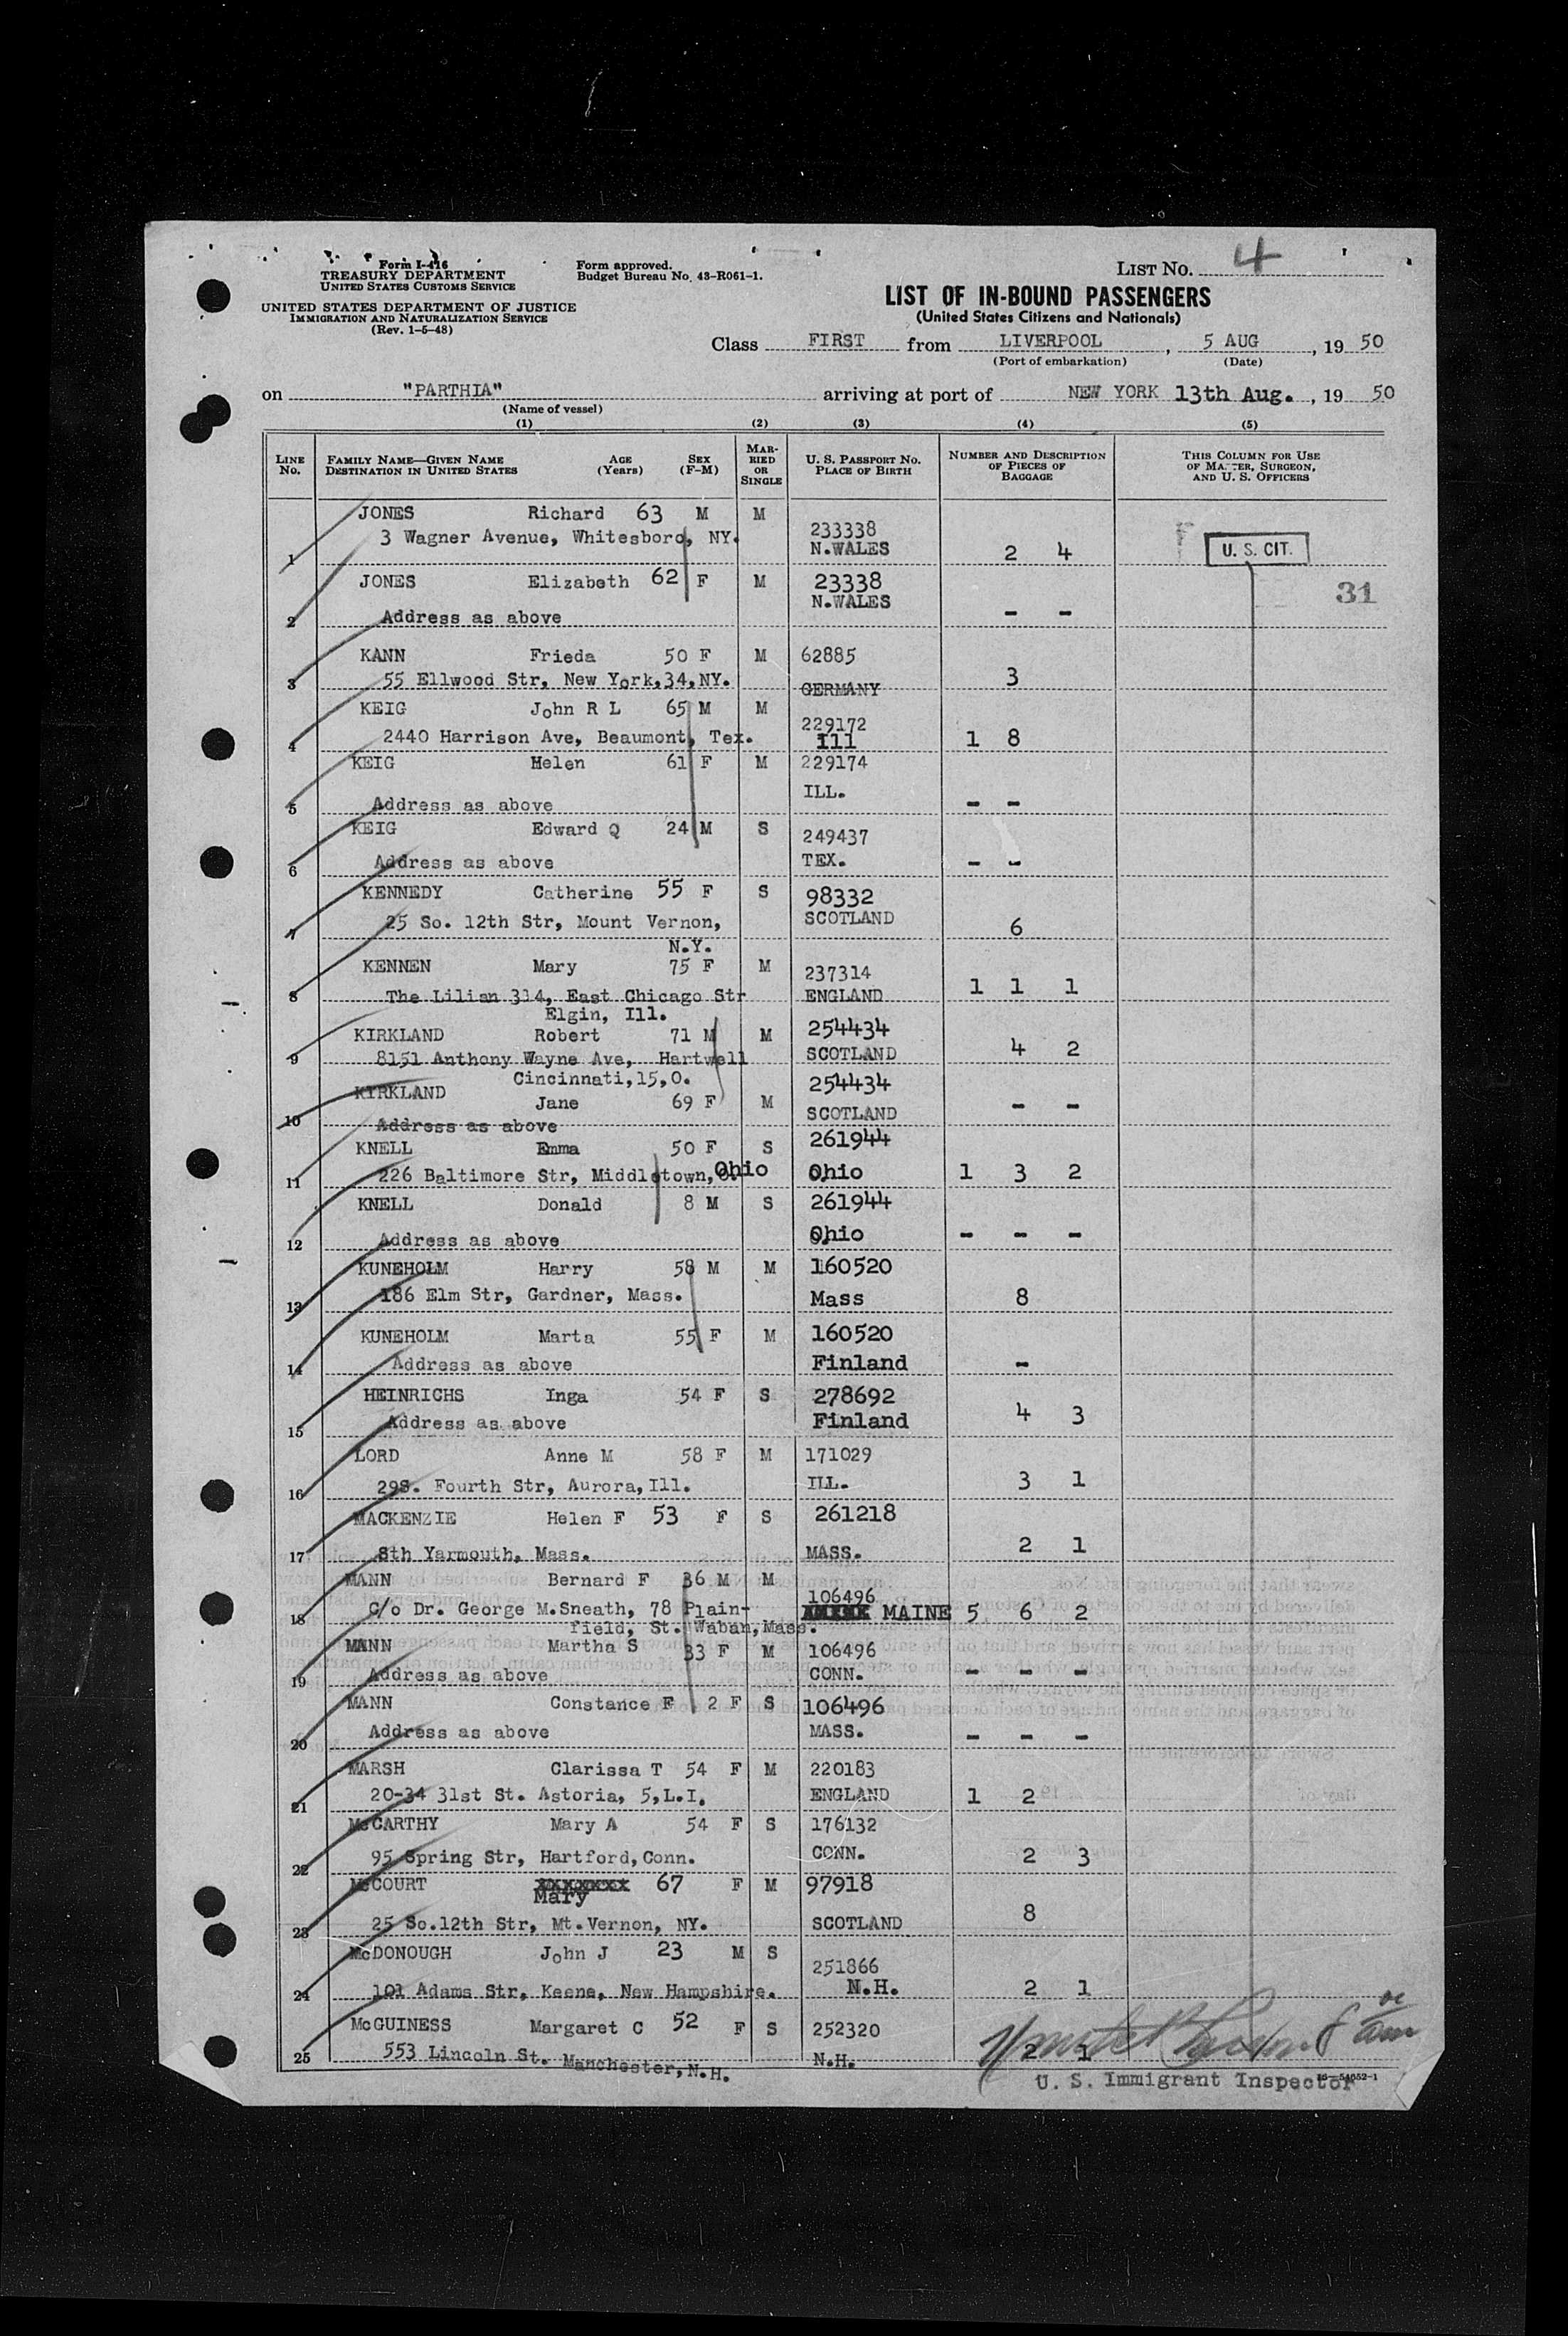 Form I-416
TREASURY DEPARTMENT
UNITED STATES CUSTOMS SERVICE
UNITED STATES DEPARTMENT OF JUSTICE
IMMIGRATION AND NATURALIZATION SERVICE
(Rev. 1-5-48)
Form approved.
Budget Bureau No. 43-R061-1.
LIST NO. 4
LIST OF IN-BOUND PASSENGERS
(United States Citizens and Nationals)
Class FIRST from LIVERPOOL, 5 AUG, 19 50
(Port of embarkation) (Date)
on "PARTHIA" arriving at port of NEW YORK 13th Aug., 19 50
(Name of vessel)
(1) (2) (3) (4) (5)
LINE NO. FAMILY NAME—GIVEN NAME DESTINATION IN UNITED STATES AGE (Years) SEX (F-M) MARRIED OR SINGLE U. S. PASSPORT NO. PLACE OF BIRTH NUMBER AND DESCRIPTION OF PIECES OF BAGGAGE THIS COLUMN FOR USE OF MASTER, SURGEON, AND U. S. OFFICERS
JONES Richard 63 M M 233338
1 3 Wagner Avenue, Whitesboro, NY. N.WALES 2 4 U. S. CIT.
JONES Elizabeth 62 F M 23338
31
2 Address as above N.WALES - -
KANN Frieda 50 F M 62885
3 55 Ellwood Str, New York,34,NY. GERMANY 3
KEIG John R L 65 M M 229172
4 2440 Harrison Ave, Beaumont, Tex. Ill 1 8
KEIG Helen 61 F M 229174
5 Address as above ILL. - -
KEIG Edward Q 24 M S 249437
6 Address as above TEX. - -
KENNEDY Catherine 55 F S 98332
7 25 So. 12th Str, Mount Vernon, SCOTLAND 6
N.Y.
KENNEN Mary 75 F M 237314
8 The Lilian 314, East Chicago Str ENGLAND 1 1 1
Elgin, Ill.
KIRKLAND Robert 71 M M 254434
9 8151 Anthony Wayne Ave, Hartwell SCOTLAND 4 2
Cincinnati,15,O.
KIRKLAND Jane 69 F M 254434
10 Address as above SCOTLAND - -
KNELL Emma 50 F S 261944
11 226 Baltimore Str, Middletown, Ohio Ohio 1 3 2
KNELL Donald 8 M S 261944
12 Address as above Ohio - - -
KUNEHOLM Harry 58 M M 160520
13 186 Elm Str, Gardner, Mass. Mass 8
KUNEHOLM Marta 55 F M 160520
14 Address as above Finland -
HEINRICHS Inga 54 F S 278692
15 Address as above Finland 4 3
LORD Anne M 58 F M 171029
16 29S. Fourth Str, Aurora,Ill. ILL. 3 1
MACKENZIE Helen F 53 F S 261218
17 Sth Yarmouth, Mass. MASS. 2 1
MANN Bernard F 36 M M 106496
18 c/o Dr. George M.Sneath, 78 Plain- MAINE 5 6 2
field, St. Waban,Mass.
MANN Martha S 33 F M 106496
19 Address as above CONN. - - -
MANN Constance F 2 F S 106496
20 Address as above MASS. - - -
MARSH Clarissa T 54 F M 220183
21 20-34 31st St. Astoria, 5,L.I. ENGLAND 1 2
McCARTHY Mary A 54 F S 176132
22 95 Spring Str, Hartford,Conn. CONN. 2 3
McCOURT Mary 67 F M 97918
23 25 So.12th Str, Mt.Vernon, NY. SCOTLAND 8
McDONOUGH John J 23 M S 251866
24 101 Adams Str, Keene, New Hampshire. N.H. 2 1
McGUINESS Margaret C 52 F S 252320
25 553 Lincoln St. Manchester,N.H. N.H. 2 1
U. S. Immigrant Inspector
16-54052-1